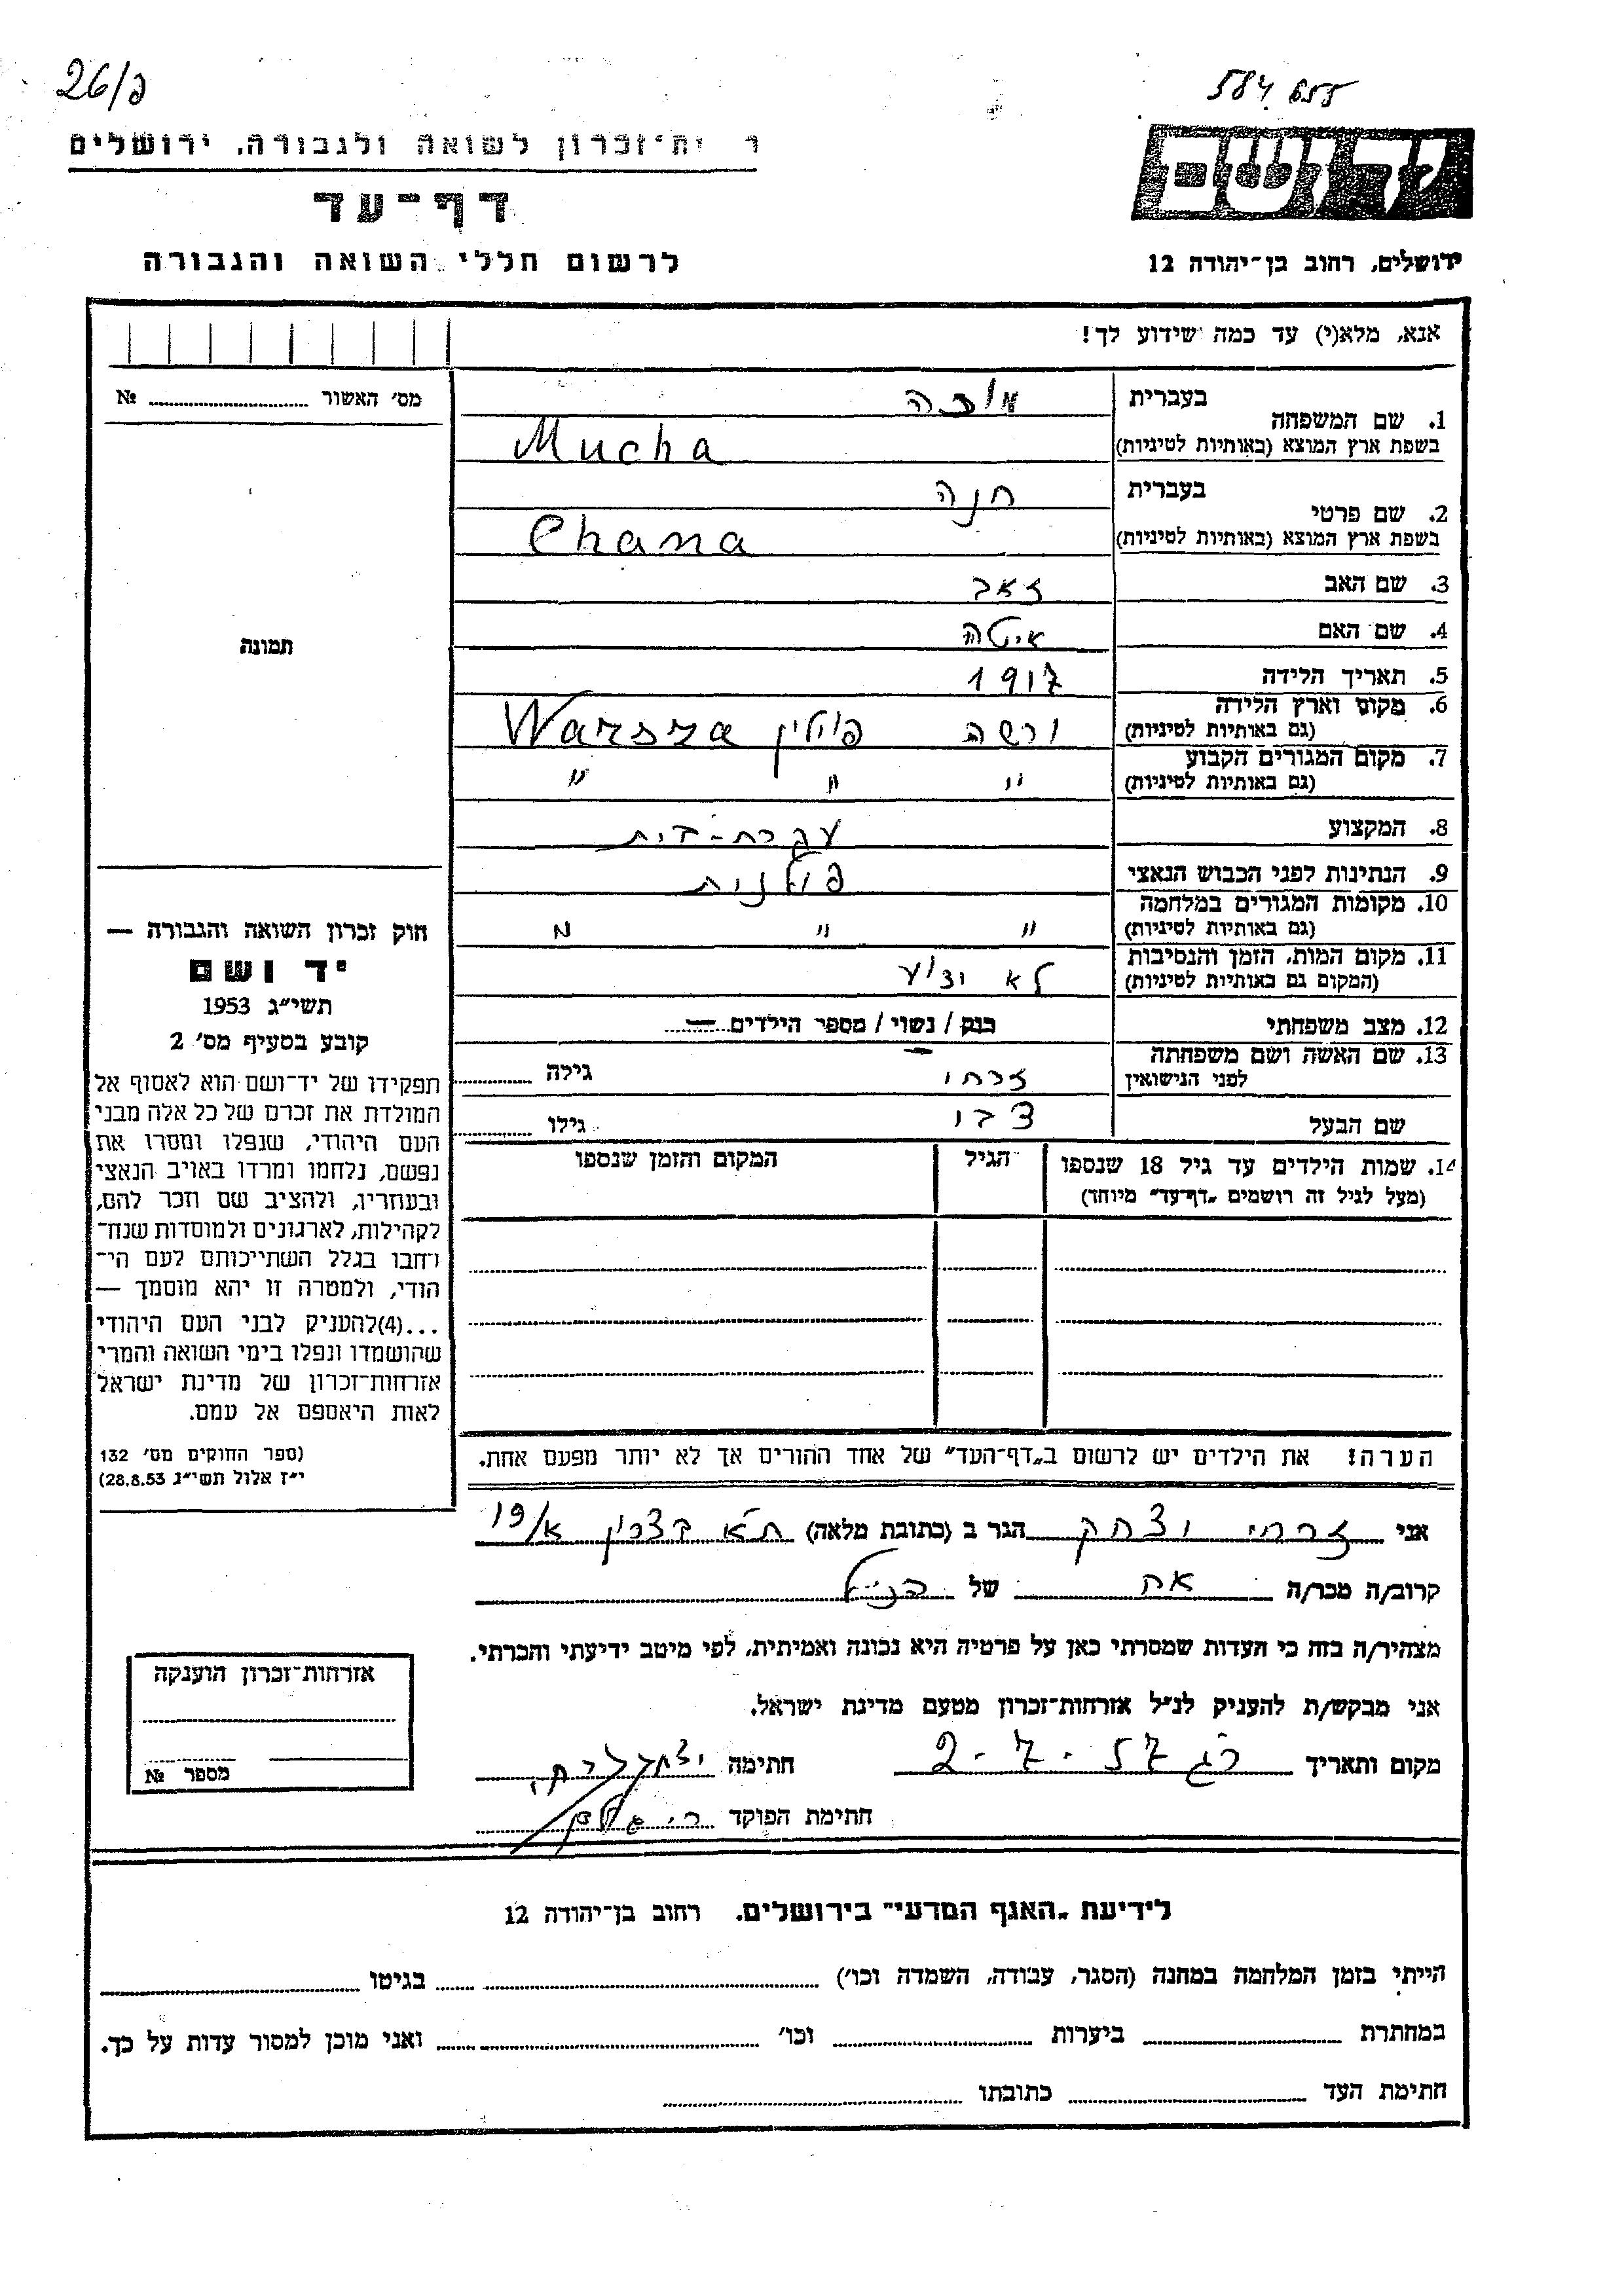 26/פ
584 655
ו ית־זכרון לשואה ולגבורה, ירושלים
דף־עד
לרשום חללי השואה והגבורה
יד ושם
ירושלים, רחוב בן־יהודה 12
אנא, מלא(י) עד כמה שידוע לך!
מס׳ האשור № 
1. שם המשפחה
בעברית מוכה
בשפת ארץ המוצא (באותיות לטיניות) Mucha
2. שם פרטי
בעברית חנה
בשפת ארץ המוצא (באותיות לטיניות) Chana
3. שם האב זאב
4. שם האם איטה
5. תאריך הלידה 1917
6. מקום וארץ הלידה
(גם באותיות לטיניות) ורשה פולין Warsza
7. מקום המגורים הקבוע
(גם באותיות לטיניות) " " "
8. המקצוע עקרת-בית
9. הנתינות לפני הכבוש הנאצי פולנית
10. מקומות המגורים במלחמה
(גם באותיות לטיניות) " " "
11. מקום המות, הזמן והנסיבות
(המקום גם באותיות לטיניות) לא ידוע
12. מצב משפחתי רוק / נשוי / מספר הילדים —
13. שם האשה ושם משפחתה
לפני הנישואין זרחי גילה
שם הבעל צבי גילו
14. שמות הילדים עד גיל 18 שנספו הגיל המקום והזמן שנספו
(מעל לגיל זה רושמים „דף־עד״ מיוחד)
הערה! את הילדים יש לרשום ב„דף־העד״ של אחד ההורים אך לא יותר מפעם אחת.
תמונה
חוק זכרון השואה והגבורה —
יד ושם
תשי״ג 1953
קובע בסעיף מס׳ 2
תפקידו של יד־ושם הוא לאסוף אל
המולדת את זכרם של כל אלה מבני
העם היהודי, שנפלו ומסרו את
נפשם, נלחמו ומרדו באויב הנאצי
ובעוזריו, ולהציב שם וזכר להם,
לקהילות, לארגונים ולמוסדות שנח־
רחבו בגלל השתייכותם לעם הי־
הודי, ולמטרה זו יהא מוסמך —
...(4)להעניק לבני העם היהודי
שהושמדו ונפלו בימי השואה והמרי
אזרחות־זכרון של מדינת ישראל
לאות היאספם אל עמם.
(ספר החוקים מס׳ 132
י״ז אלול תשי״ג 28.8.53)
אני זרחי יצחק הגר ב (כתובת מלאה) ת״א בצרון א/19
קרוב/ה מכר/ה אח של הנ״ל
מצהיר/ה בזה כי העדות שמסרתי כאן על פרטיה היא נכונה ואמיתית, לפי מיטב ידיעתי והכרתי.
אני מבקש/ת להעניק לנ״ל אזרחות־זכרון מטעם מדינת ישראל.
מקום ותאריך רג 2-7-57 חתימה יצחק זרחי
חתימת הפוקד
אזרחות־זכרון הוענקה
מספר №
לידיעת „האגף המדעי״ בירושלים. רחוב בן־יהודה 12
הייתי בזמן המלחמה במחנה (הסגר, עבודה, השמדה וכו׳) בגיטו
במחתרת ביערות וכו׳ ואני מוכן למסור עדות על כך.
חתימת העד כתובתו